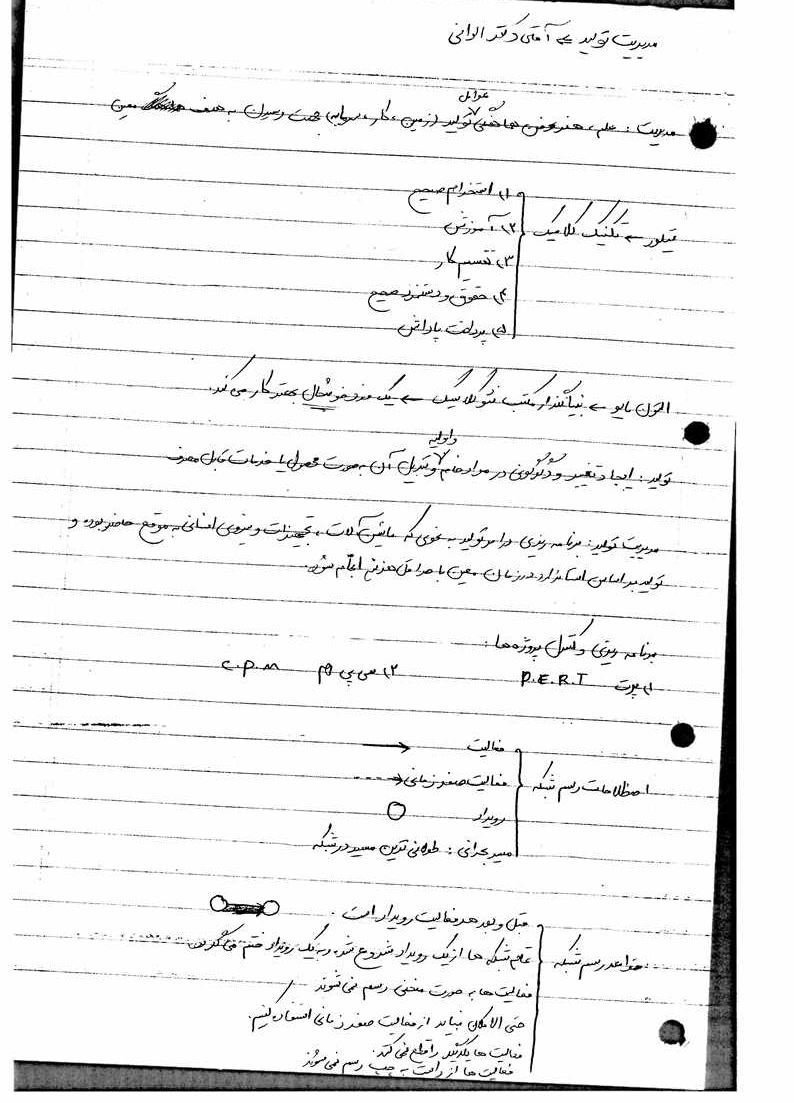 مدیریت تولید ← آقای دکتر الوانی
عوامل
مدیریت : علم، هنر و فن هماهنگی تولید (زمین، کار، سرمایه) جهت رسیدن به هدف معین
۱) استخدام صحیح
تیلور ← تکنیک کلاسیک
۲) آموزش
۳) تقسیم کار
۴) حقوق و دستمزد صحیح
۵) پرداخت پاداش
التون مایو ← بنیانگذار مکتب نئوکلاسیک ← یک فرد خوشحال بهتر کار می کند.
و اولیه
تولید : ایجاد تغییر و دگرگونی در مواد خام و تبدیل آن به صورت محصول یا خدمات قابل مصرف
مدیریت تولید : برنامه ریزی در امر تولید به نحوی که ماشین آلات، تجهیزات و نیروی انسانی به موقع حاضر بوده و
تولید بر اساس استاندارد در زمان معین با حداقل هزینه انجام شود.
برنامه ریزی و کنترل پروژه ها :
۱) پرت P.E.R.T ۲) سی پی ام C.P.M
فعالیت
اصطلاحات رسم شبکه
فعالیت صفر زمانی
رویداد
مسیر بحرانی : طولانی ترین مسیر در شبکه
قبل و بعد هر فعالیت رویداد است.
قواعد رسم شبکه
تمام شبکه ها از یک رویداد شروع شده و به یک رویداد ختم می گردند
فعالیت ها به صورت منحنی رسم نمی شوند
حتی الامکان نباید از فعالیت صفر زمانی استفاده کنیم.
فعالیت ها یکدیگر را قطع نمی کند.
فعالیت ها از راست به چپ رسم نمی شوند